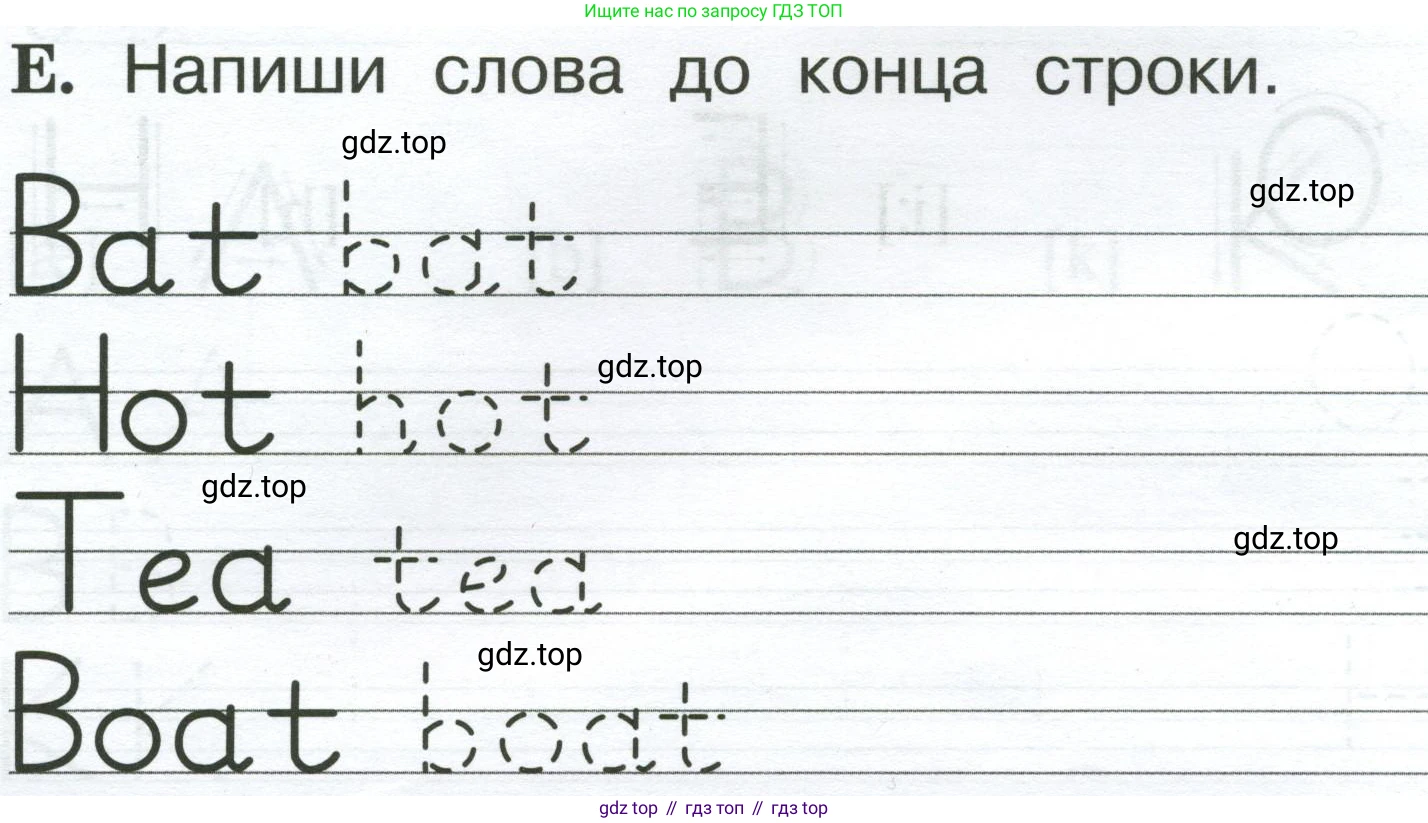 Ищите нас по запросу ГДЗ ТОП
E. Напиши слова до конца строки.
gdz.top
gdz.top
Bat bat
gdz.top
Hot hot
gdz.top
Tea tea
gdz.top
gdz.top
Boat boat
gdz top // гдз топ // гдз top